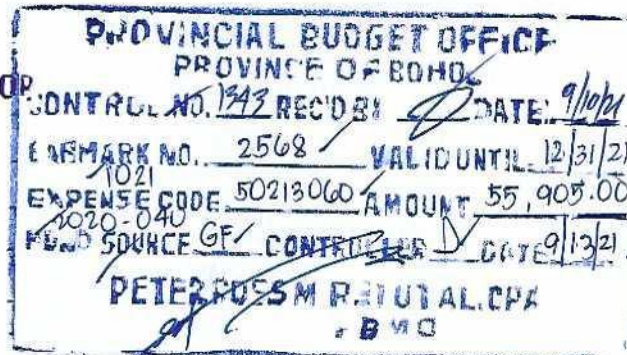 PROVINCIAL BUDGET OFFICE
PROVINCE OF BOHOL
CONTROL NO. 1343 REC'D BY DATE: 9/10/21
EARMARK NO. 2568 VALID UNTIL 12/31/21
1021
EXPENSE CODE 50213060 AMOUNT 55,905.00
2020-040
FUND SOURCE GF CONTROLLER DATE 9/13/21
PETER ROSS M CPA
PBMO